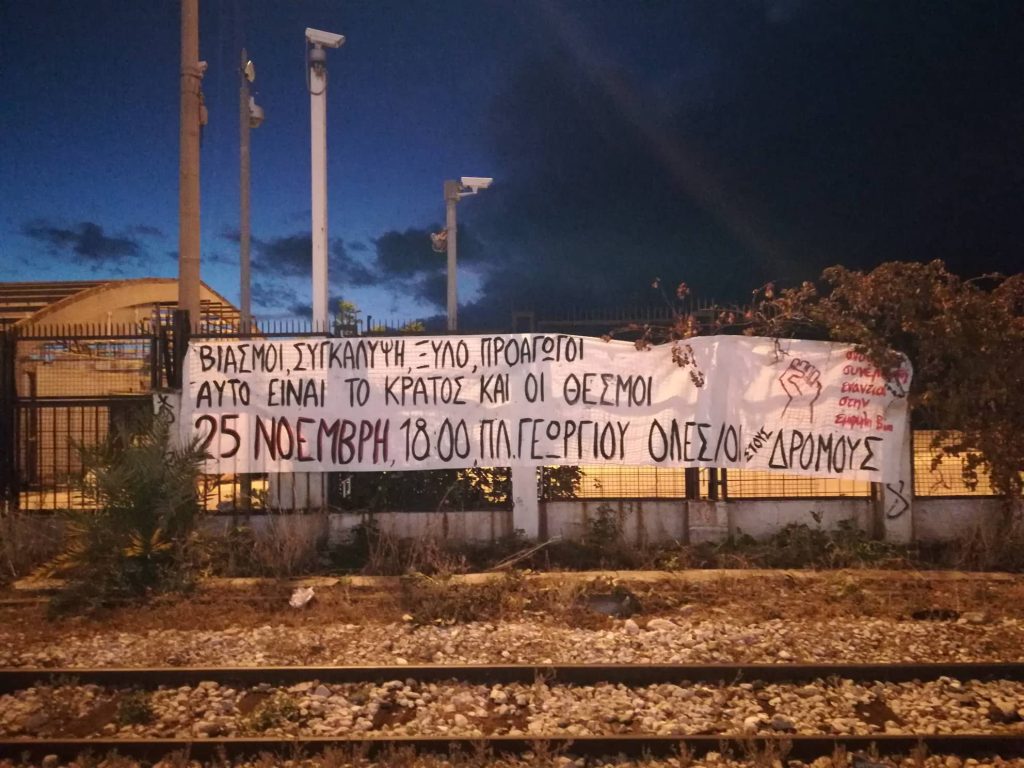 ΒΙΑΣΜΟΙ, ΣΥΓΚΑΛΥΨΗ, ΞΥΛΟ, ΠΡΟΑΓΩΓΟΙ
ΑΥΤΟ ΕΙΝΑΙ ΤΟ ΚΡΑΤΟΣ ΚΑΙ ΟΙ ΘΕΣΜΟΙ
25 ΝΟΕΜΒΡΗ, 18:00 ΠΛ. ΓΕΩΡΓΙΟΥ ΟΛΕΣ/ΟΙ ΣΤΟΥΣ ΔΡΟΜΟΥΣ
εναντια
στην